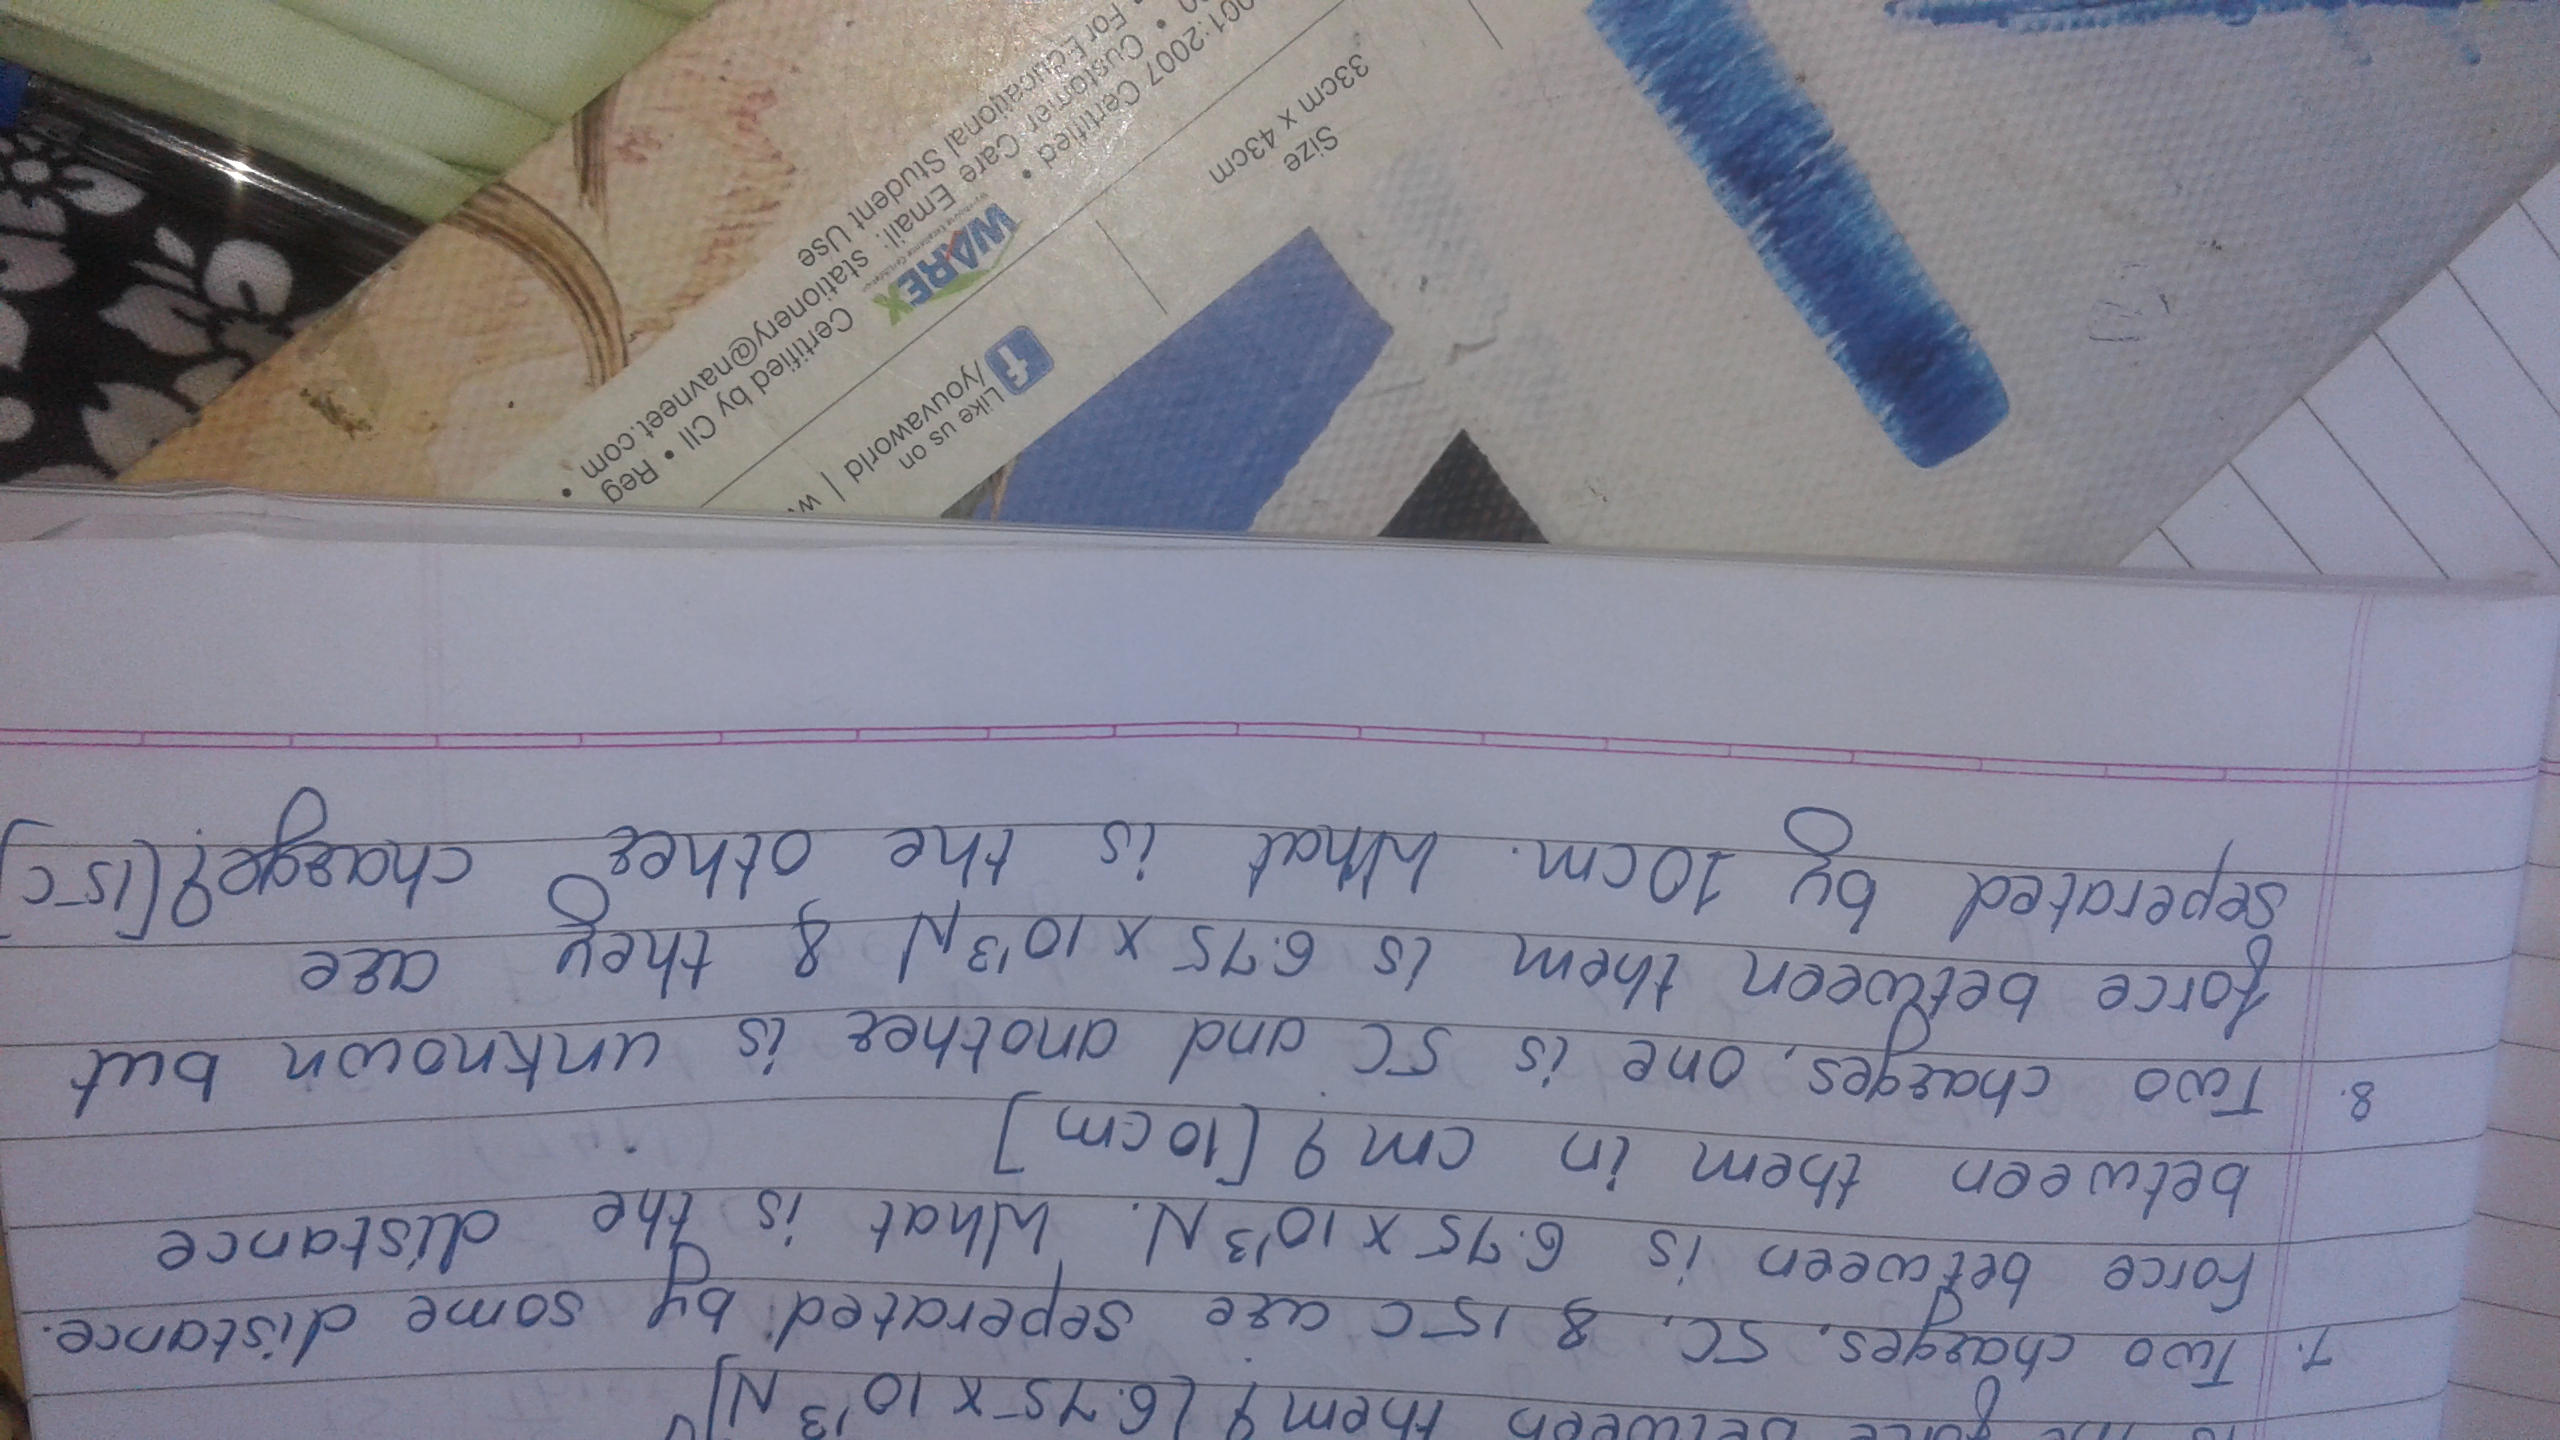 is the force between them? [6.75 x 10¹³ N]
7. Two charges, 5C, & 15C are seperated by some distance.
Force between is 6.75 x 10¹³ N. What is the distance
between them in cm? [10cm]
8. Two charges, one is 5C and another is unknown but
force between them is 6.75 x 10¹³ N & they are
seperated by 10cm. What is the other charge? [15C]
Like us on
/youvaworld |
WAREX
Certified by CII • Reg
Size
33cm x 43cm
001:2007 Certified •
• Customer Care Email: stationery@navneet.com •
• For Educational Student Use